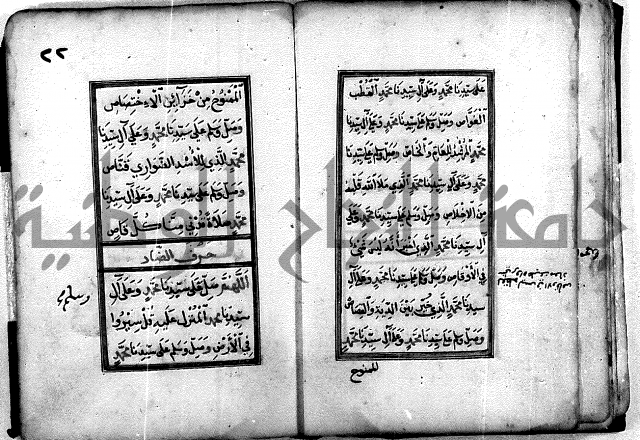 على سيدنا محمد وعلى آل سيدنا محمد القطب
الغواص وصل وسلم على سيدنا محمد وعلى آل سيدنا
محمد المرشد للعام والخاص وصل وسلم على سيدنا
محمد وعلى آل سيدنا محمد الذي ملأ الله قلبه
من الاخلاص وصل وسلم على سيدنا محمد وعلى
آل سيدنا محمد الذي اخبر انه ليس
في الأوقاص وصل وسلم على سيدنا محمد وعلى آل
سيدنا محمد الذي خير بين الدية والقصاص
وصل وسلم على سيدنا محمد وعلى آل سيدنا محمد
الممنوح
٢٢
الممنوح من خزائن الاختصاص
وصل وسلم على سيدنا محمد وعلى آل سيدنا
محمد الذي للأسد الضواري قناص
وصل وسلم على سيدنا محمد وعلى آل سيدنا
محمد صلاة كل قاص
حرف الضاد
اللهم صل على سيدنا محمد وعلى آل
وسلم
سيدنا محمد المنزل عليه قل سيروا
في الأرض وصل وسلم على سيدنا محمد
جامعة النجاح الوطنية